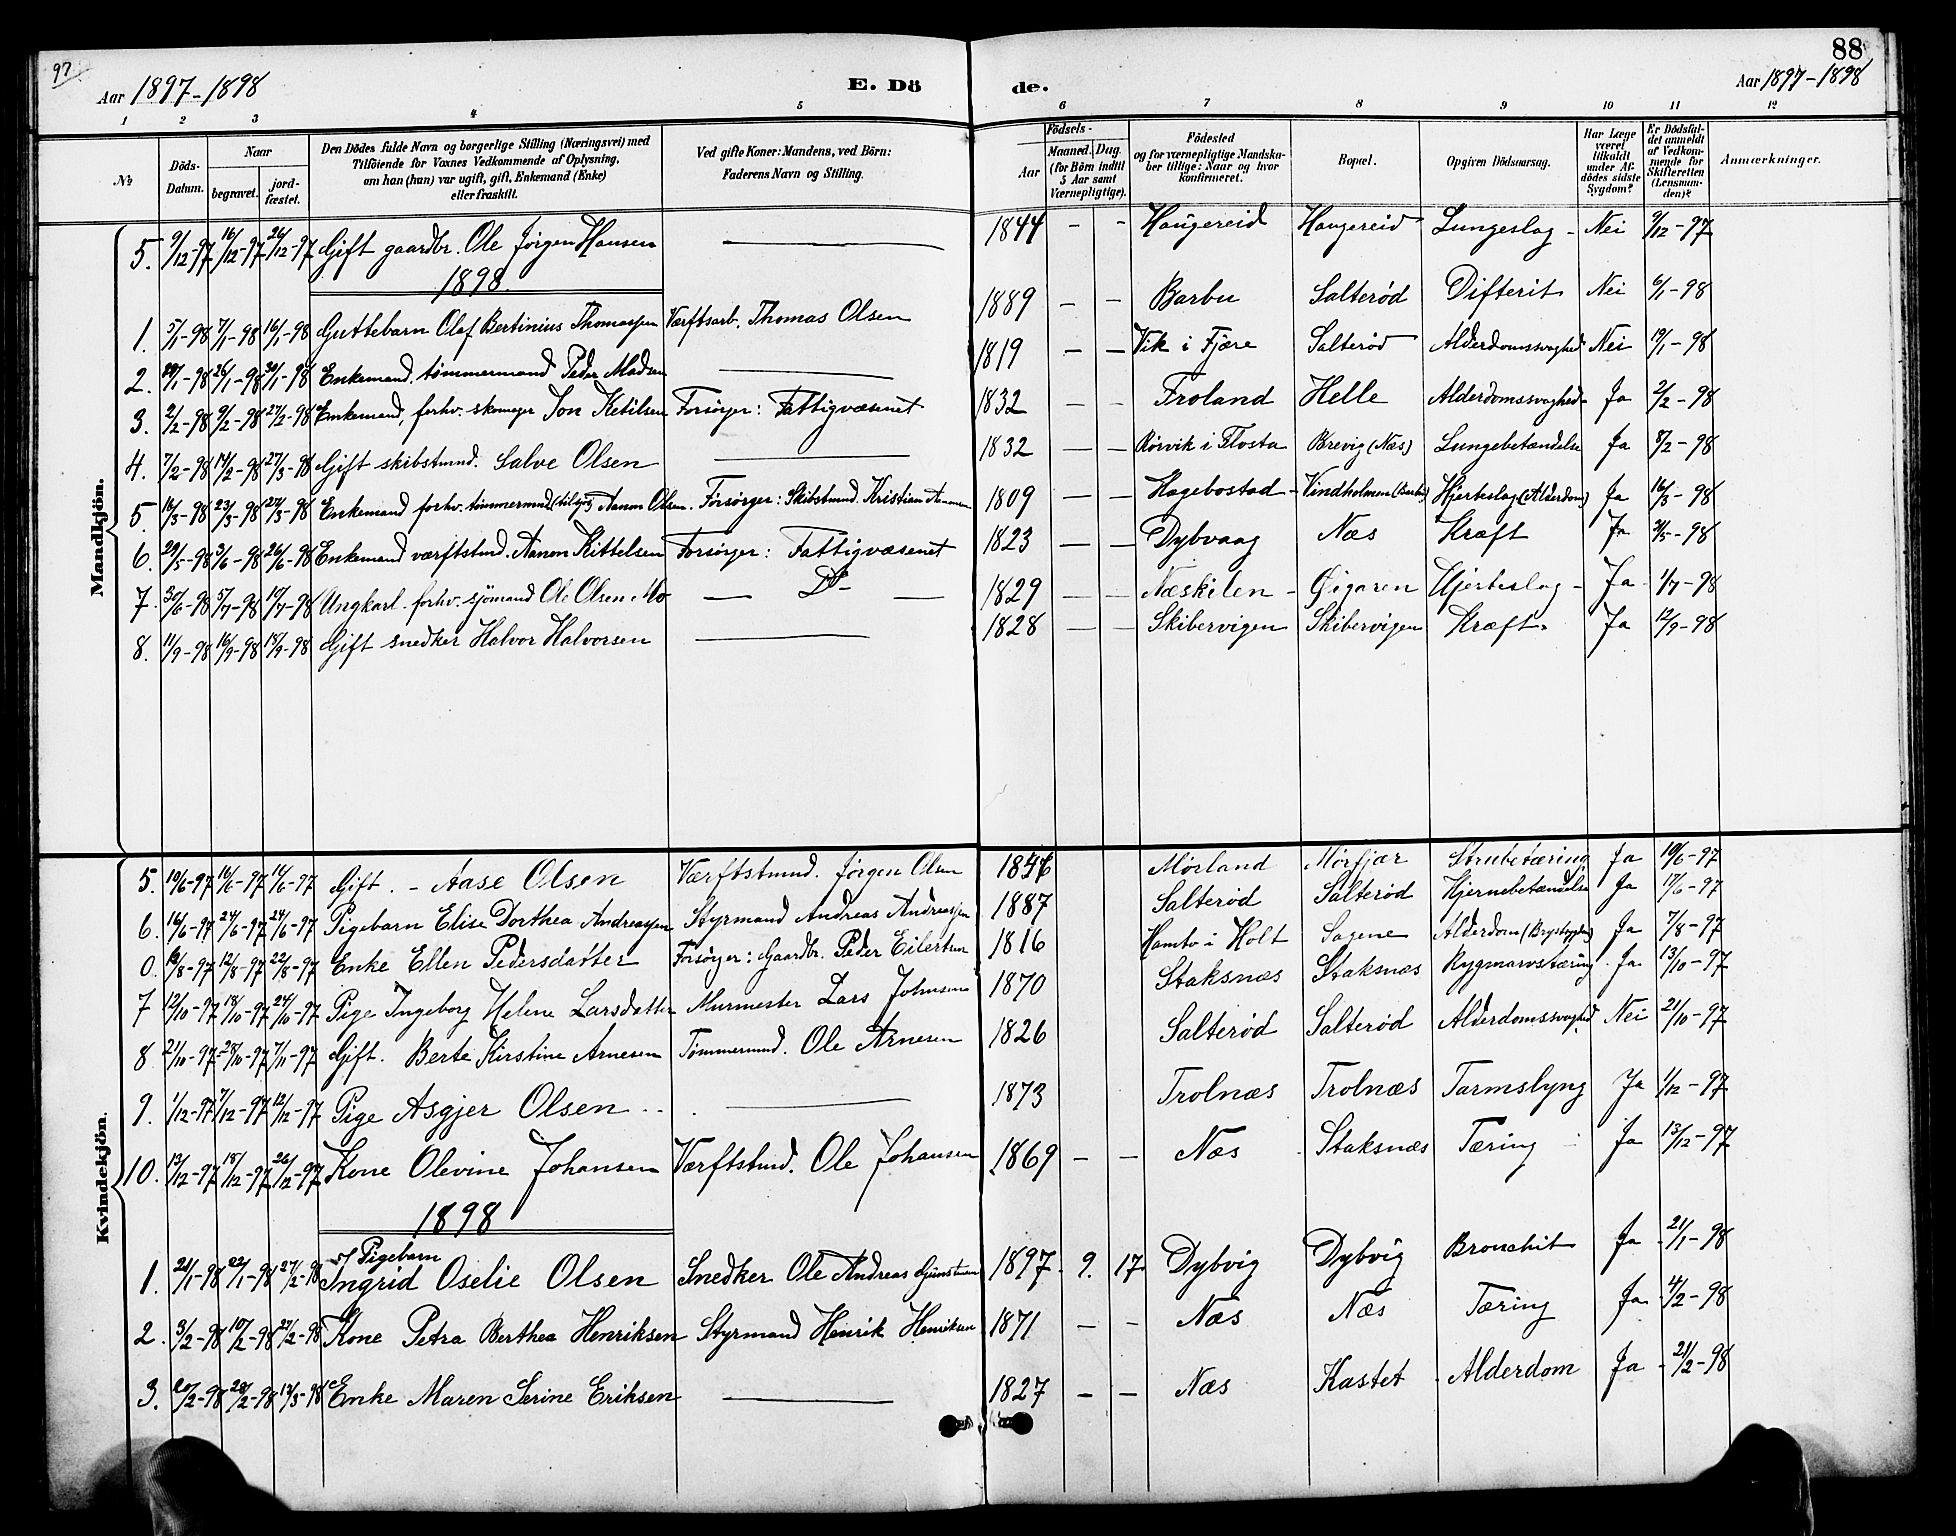 97.
Aar 1897-1898
E. Dö
de.
88
Aar 1897-1898
1 2 3 4 5 6 7 8 9 10 11 12
№
Döds-Datum.
Naar
begravet.
jord-fæstet.
Den Dödes fulde Navn og borgerlige Stilling (Næringsvei) med
Tilföiende for Voxnes Vedkommende af Oplysning,
om han (hun) var ugift, gift, Enkemand (Enke)
eller fraskilt.
Ved gifte Koner: Mandens, ved Börn:
Faderens Navn og Stilling.
Födsels-
Aar
Maaned. Dag.
(for Börn indtil
5 Aar samt
Værnepligtige).
Födested
og for værnepligtige Mandska-
ber tillige: Naar og hvor
konfirmeret.
Bopæl.
Opgiven Dödsaarsag.
Har Læge
været
tilkaldt
under Af-
dödes sidste
Sygdom?
Er Dödsfal-
det anmeldt
af Vedkom-
mende for
Skifteretten
(Lensman-
den)?
Anmærkninger.
Mandkjön.
5. 9/12-97 16/12-97 26/12-97 Gift gaardbr. Ole Jörgen Hansen — 1844 - - Haugereid Haugereid Lungeslag - Nei 9/12-97
1898
1. 5/1-98 7/1-98 16/1-98 Guttebarn Olaf Bertinius Thomassen Værftsarb. Thomas Olsen 1889 - - Barbu Salterød Difterit Nei 6/1-98
2. 26/1-98 30/1-98 Enkemand, tømmermand Peder Madsen — 1819 - - Vik i Fjære Salterød Alderdomssvaghed Nei 19/1-98
3. 2/2-98 9/2-98 27/2-98 Enkemand, forhv. skomager Jon Ketilsen Forsörger: Fattigvæsenet 1832 - - Froland Helle Alderdomssvaghed- Ja 2/2-98
4. 7/2-98 14/2-98 27/3-98 Gift skibstmnd. Salve Olsen — 1832 - - Rörvik i Flosta Brevig (Næs) Lungebetændelse Ja 8/2-98
5. 16/3-98 23/3-98 27/3-98 Enkemand forhv. tömmermnd Aanon Olsen. Forsörger: Skibstmnd. Kristian 1809 - - Hagebostad - Vindholmen (Barbu) Hjerteslag (Alderdom) Ja 16/3-98
6. 29/5-98 3/6-98 26/6-98 Enkemand værftstmd. Aanon Kittelsen Forsörger: Fattigvæsenet 1823 - - Dybvaag Næs Kræft Ja 31/5-98
7. 30/6-98 5/7-98 10/7-98 Ungkarl. forhv. sjömand Ole Olsen Mo — Do - — 1829 - - Næskilen - Öigaren Hjerteslag - Ja 1/7-98
8. 11/9-98 16/9-98 18/9-98 Gift snedker Halvor Halvorsen — 1828 - - Skibervigen Skibervigen Kræft. Ja 12/9-98
Kvindekjön.
5. 10/6-97 16/6-97 Gift. - Aase Olsen Værftstmnd. Jörgen Olsen Mörland Mörfjær Strubetæring Ja 10/6-97
6. 16/6-97 24/6-97 24/6-97 Pigebarn Elise Dorthea Andreassen Styrmand Andreas Andreassen 1887 Salterød Salterød Hjernebetændelse Ja 17/6-97
0. 12/8-97 22/8-97 Enke Ellen Pedersdatter Forsörger: Gaardbr. Peder Eilertsen 1816 i Holt Sagene Alderdom Ja 7/8-97
7 12/10-97 18/10-97 24/10-97 Pige Ingeborg Helene Larsdatter Murmester Lars Johnsen 1870 Staksnæs Staksnæs Rygmarvstæring. Ja 13/10-97
8 21/10-97 28/10-97 7/11-97 Gift. Berte Kirstine Arnesen Tömmermnd. Ole Arnesen 1826 Salterød Salterød Alderdomssvaghed Nei 21/10-97
9. 1/12-97 7/12-97 12/12-97 Pige Asgjer Olsen — 1873 Trolnæs Trolnæs Tarmslyng Ja 1/12-97
10. 13/12-97 18/12-97 26/12-97 Kone Olevine Johansen Værftstmd. Ole Johansen 1869 - - Næs Staksnæs Tæring Ja 13/12-97
1898
Pigebarn
1. 21/1-98 22/1-98 27/2-98 Ingrid Oselie Olsen Snedker Ole Andreas 1897. 9. 17. Dybvig Dybvig Bronchit Ja 21/1-98
2. 3/2-98 10/2-98 27/2-98 Kone Petra Berthea Henriksen Styrmand Henrik Henriksen 1871 - - Næs Næs Tæring Ja 4/2-98
3. 20/2-98 28/2-98 13/3-98 Enke Maren Serine Eriksen — 1827 - - Næs Kastet Alderdom Ja 21/2-98